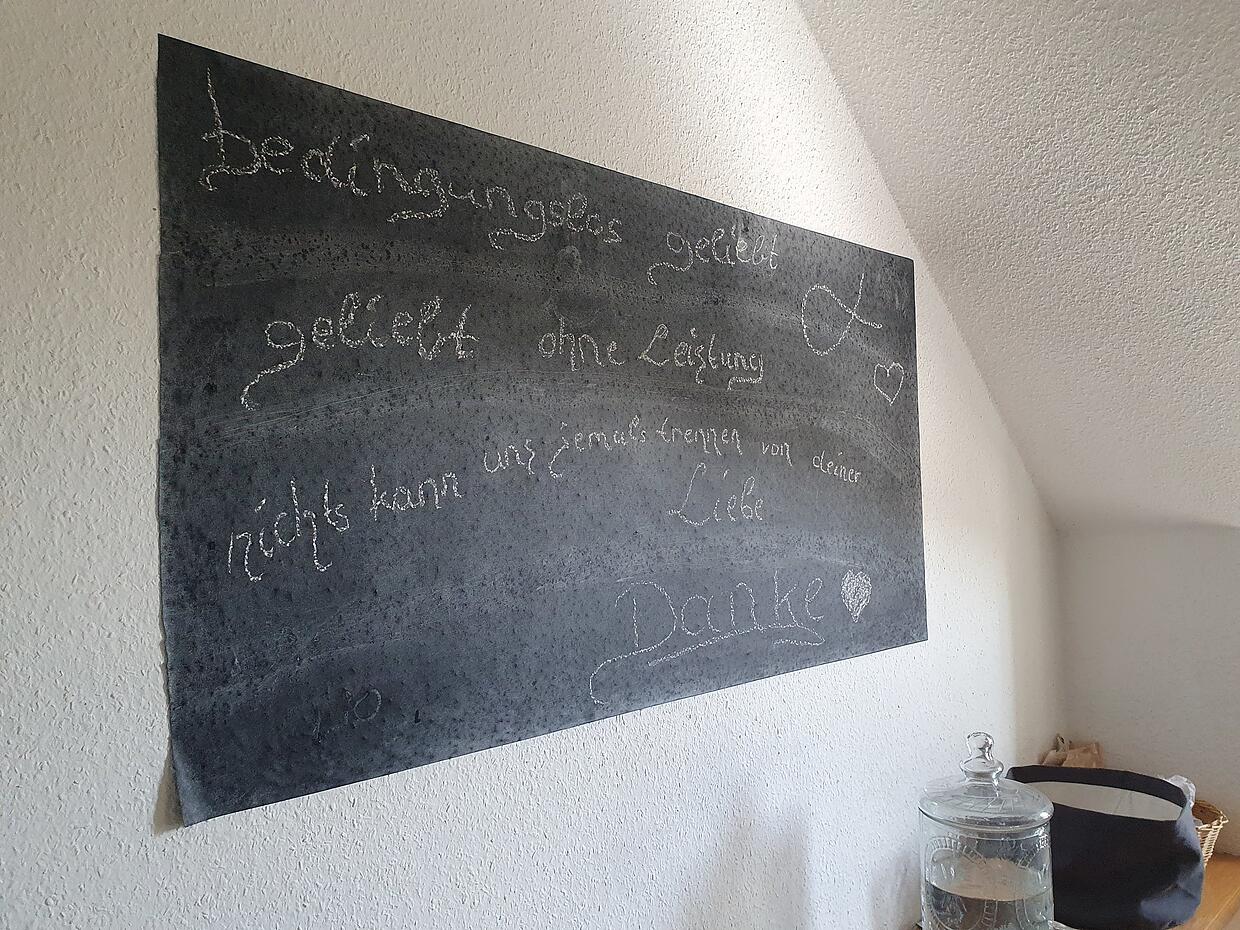 bedingungslos geliebt
geliebt ohne Leistung
nichts kann uns jemals trennen von deiner
Liebe
Danke